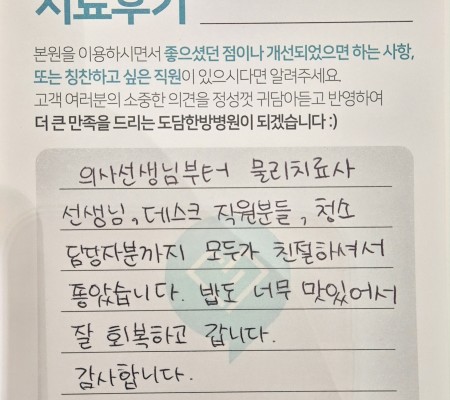 치료후기
본원을 이용하시면서 좋으셨던 점이나 개선되었으면 하는 사항,
또는 칭찬하고 싶은 직원이 있으시다면 알려주세요.
고객 여러분의 소중한 의견을 정성껏 귀담아듣고 반영하여
더 큰 만족을 드리는 도담한방병원이 되겠습니다 :)
의사선생님부터 물리치료사
선생님, 데스크 직원분들, 청소
담당자분까지 모두가 친절하셔서
좋았습니다. 밥도 너무 맛있어서
잘 회복하고 갑니다.
감사합니다.